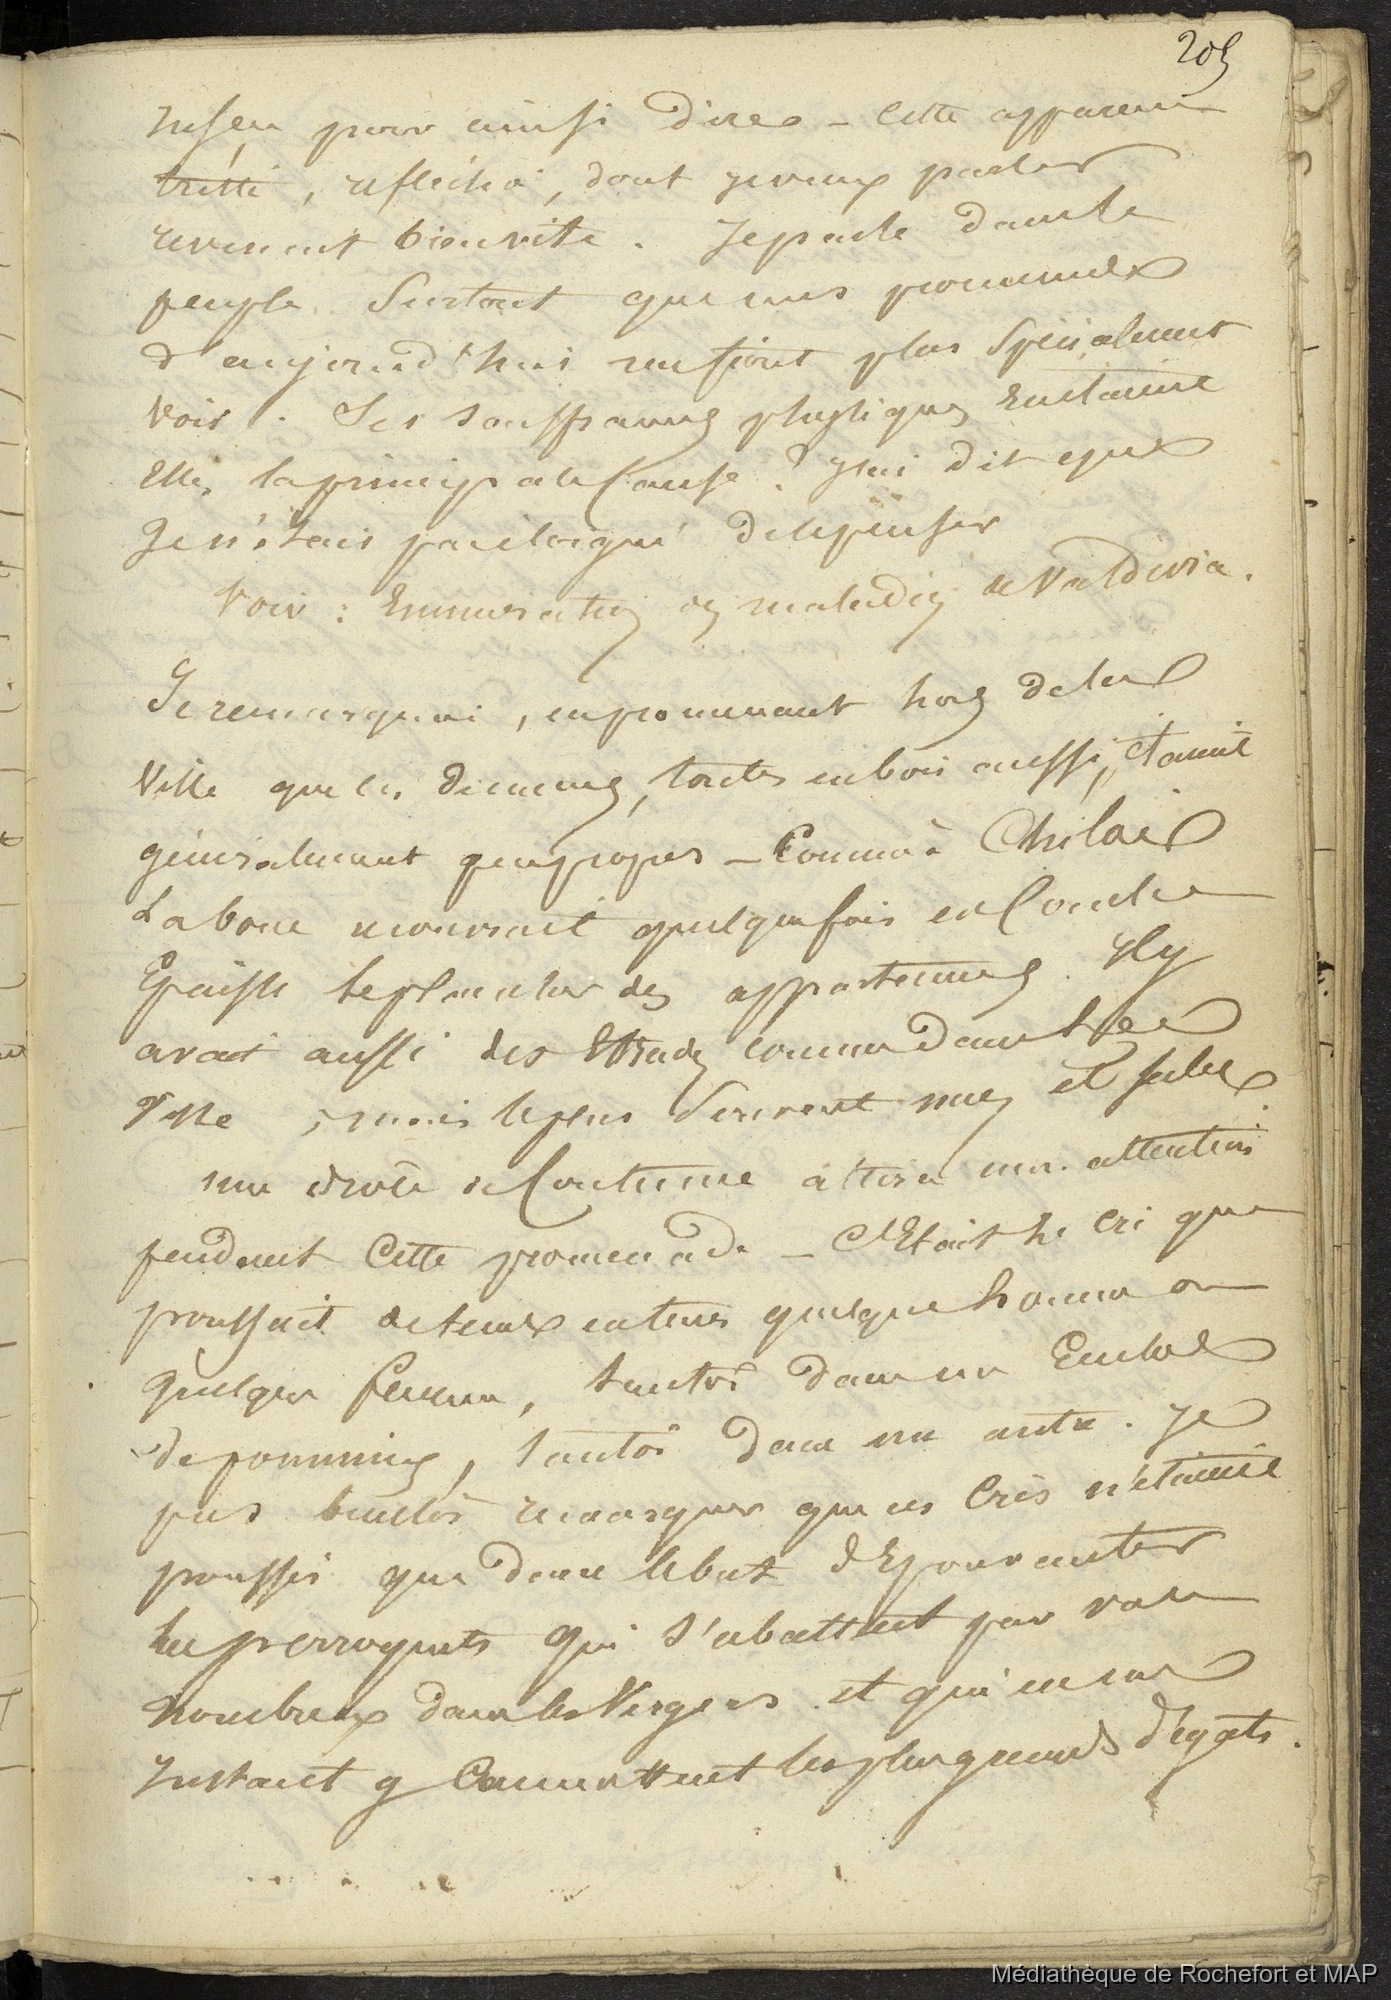 205
insçu pour ainsi dire – cette apparence
triste, réfléchie, dont je veux parler
revenait bien vite. Je parle dans le
peuple surtout que mes promenades
d'aujourd'hui me font plus spécialement
voir. Les souffrances physiques en étaient
elles la principale cause ? J'ai dit que
Je n'étais pas éloigné de le penser
Voir : Enumération des maladies de Valdivia.
Je remarquai, en promenant hors de la
Ville que les demeures, toutes en bois aussi, étaient
généralement peu propres – Comme à Chiloë
La boue recouvrait quelquefois en couche
Epaisse le plancher des appartements. Il y
avait aussi des Estrades comme dans la
Ville, mais le plus souvent nues et sales
une drôle de Coutume attira mon attention
pendant Cette promenade – C'Etait le cri que
poussait de temps en temps quelque homme ou
quelque femme, tantôt dans un Enclos
de pommiers, tantôt dans un autre. Je
pus bientôt remarquer que ces Cris n'étaient
poussés que dans le but d'Epouvanter
les perroquets qui s'abattent par vols
nombreux dans les Vergers et qui en un
Instant y Commettent les plus grands dégâts.
Médiathèque de Rochefort et MAP